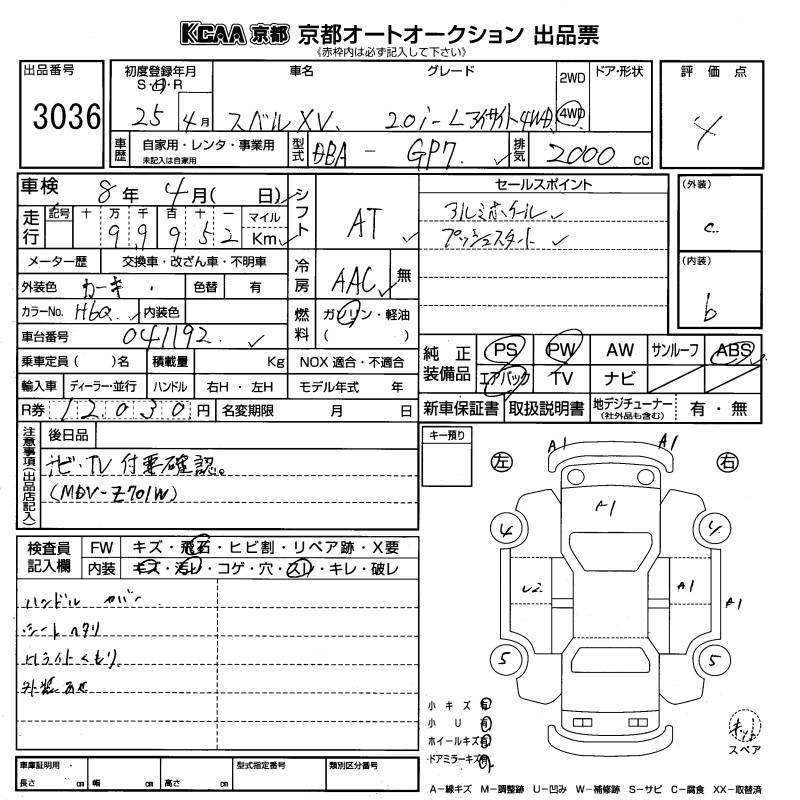 KCAA 京都 京都オートオークション 出品票
(赤枠内は必ず記入して下さい)
出品番号
3036
初度登録年月
S・H・R
25 4月
車名
スバルXV.
グレード
2.0i-Lアイサイト4WD
2WD
4WD
ドア・形状
評価点
4
車歴
自家用・レンタ・事業用
未記入は自家用
型式
DBA - GP7
排気
2000 cc
車検
8年 4月( 日)
走行
記号 十 万 千 百 十 一
9 9 9 5 2
マイル
Km
シフト
AT
セールスポイント
アルミホイール
プッシュスタート
(外装)
c
(内装)
b
メーター歴
交換車・改ざん車・不明車
冷房
AAC
無
外装色
カーキ
色替
有
カラーNo.
H6Q
内装色
燃料
ガソリン・軽油
( )
車台番号
041192
乗車定員( )名
積載量
Kg
NOX 適合・不適合
輸入車
ディーラー・並行
ハンドル
右H・左H
モデル年式 年
R券
12030円
名変期限
月 日
純正装備品
PS PW AW サンルーフ ABS
エアバック TV ナビ
新車保証書
取扱説明書
地デジチューナー
(社外品も含む)
有・無
注意事項(出品店記入)
後日品
ナビ・TV 付要確認。
(MDV-Z701W)
キー預り
検査員記入欄
FW
キズ・飛石・ヒビ割・リペア跡・X要
内装
キズ・汚レ・コゲ・穴・スレ・キレ・破レ
ハンドル カバー
シート ヘタリ
Hライトくもり
外装 あせ
左
右
A1
A1
A1
4
4
U2
A1
A1
5
5
小キズ 有
小U 有
ホイールキズ 有
ドアミラーキズ 有
キット
スペア
車庫証明用・
長さ cm 幅 cm 高さ cm
型式指定番号
類別区分番号
A-線キズ M-調整跡 U-凹み W-補修跡 S-サビ C-腐食 XX-取替済